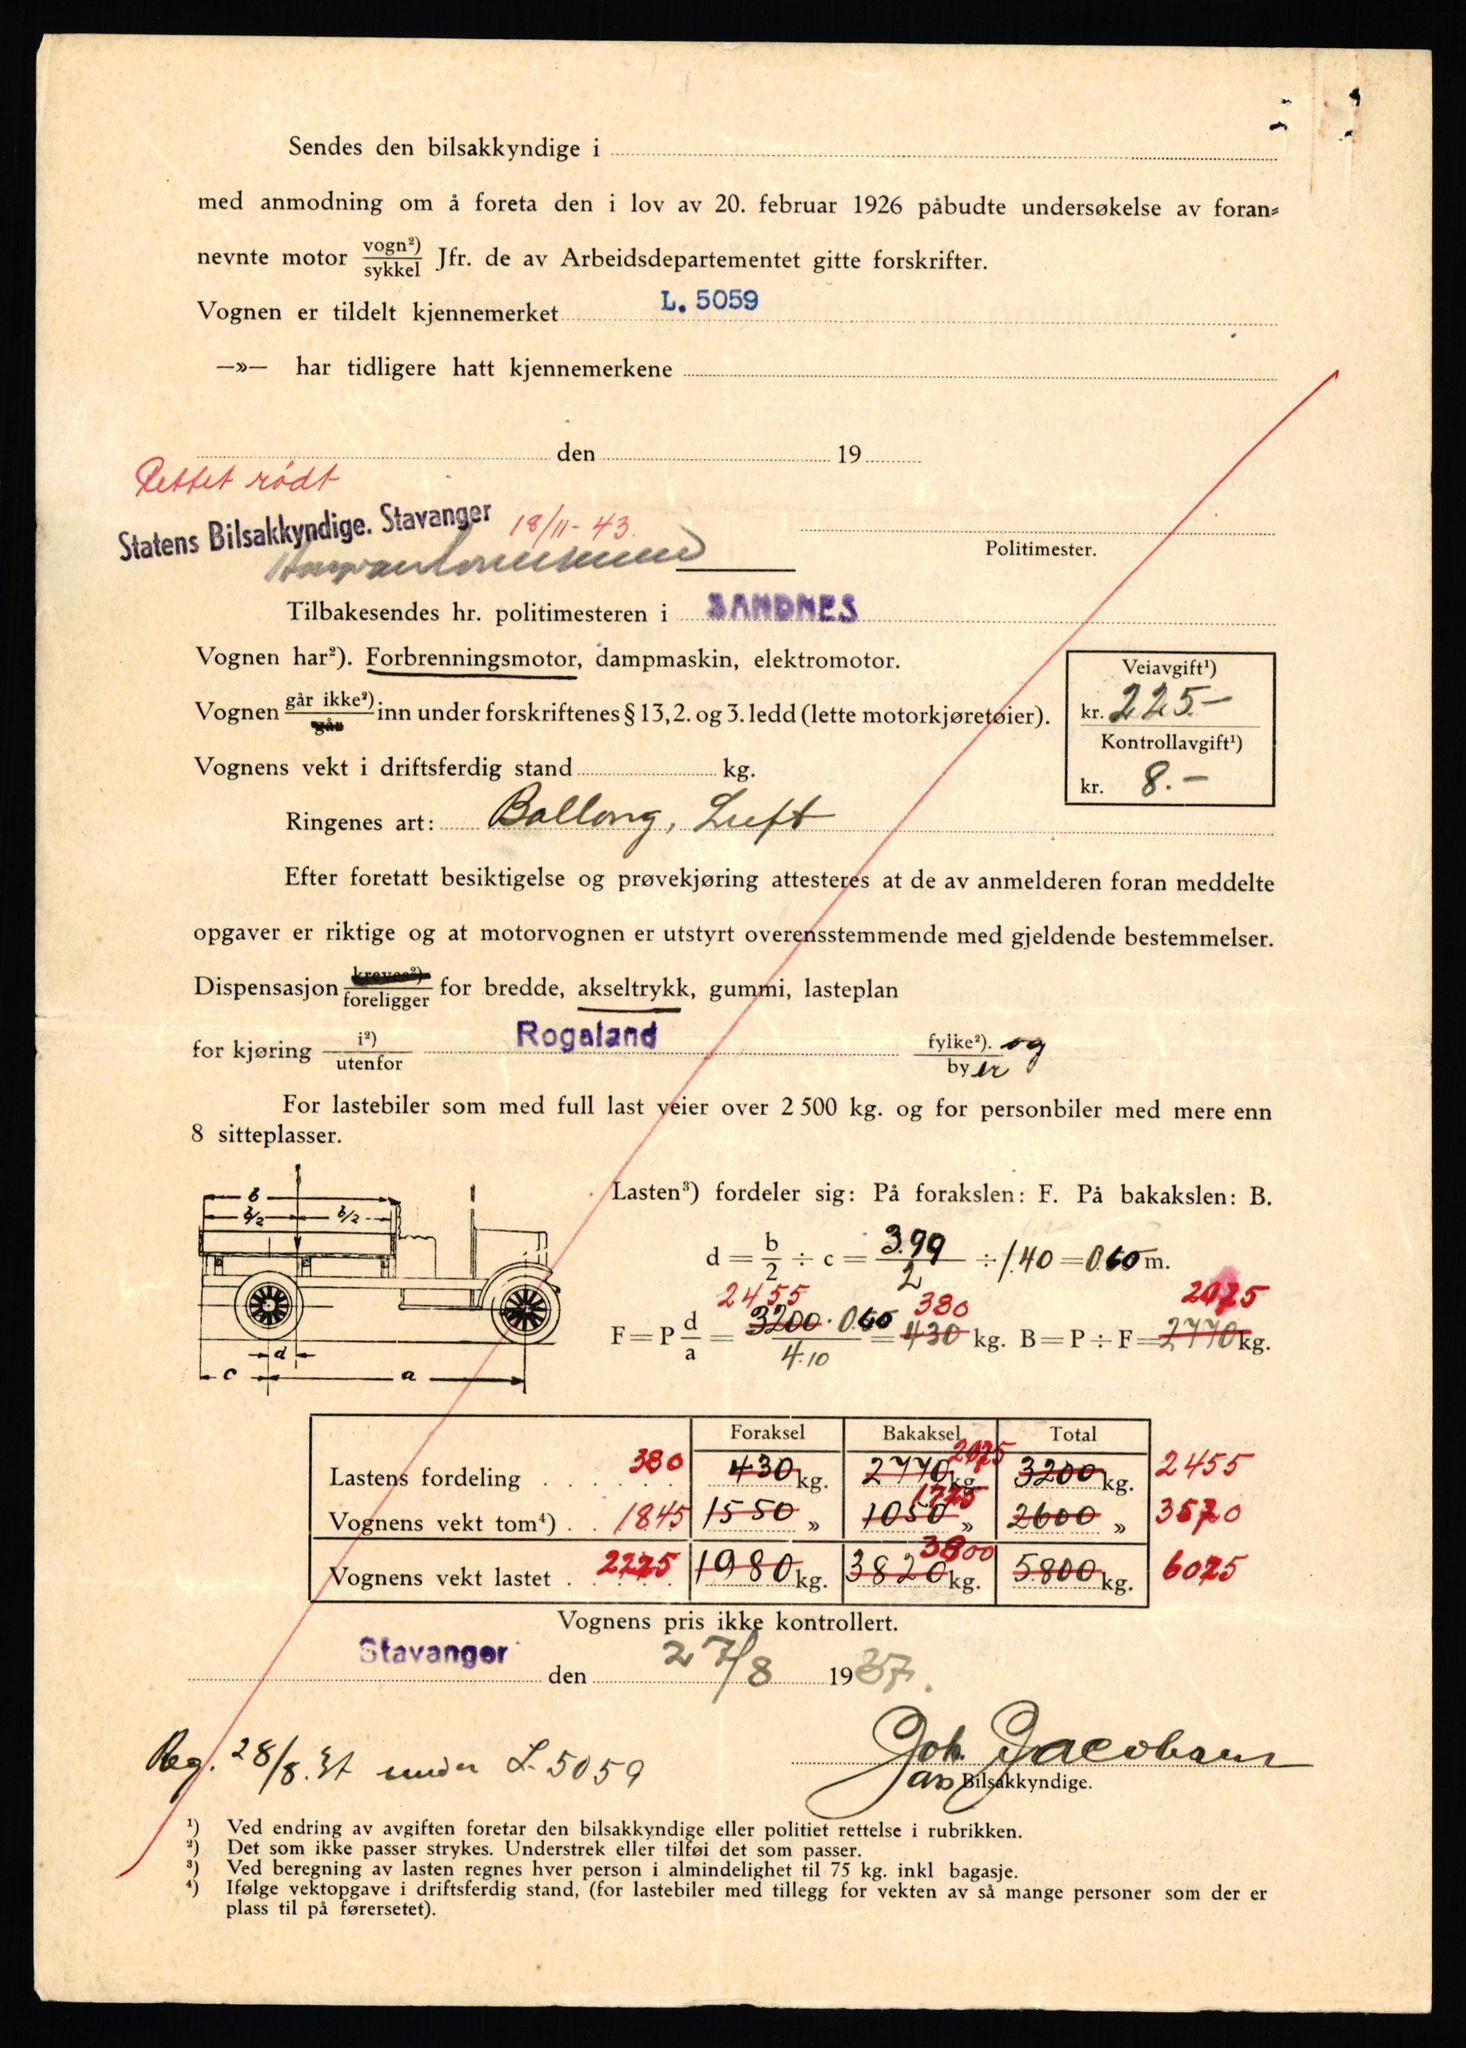 Sendes den bilsakkyndige i
med anmodning om å foreta den i lov av 20. februar 1926 påbudte undersøkelse av foran=
nevnte motor vogn²) / sykkel Jfr. de av Arbeidsdepartementet gitte forskrifter.
Vognen er tildelt kjennemerket L. 5059
—»— har tidligere hatt kjennemerkene
den 19
Rettet rødt
Statens Bilsakkyndige. Stavanger 18/11-43.
Politimester.
Tilbakesendes hr. politimesteren i SANDNES
Vognen har²). Forbrenningsmotor, dampmaskin, elektromotor.
Veiavgift¹)
Vognen går ikke²) / går inn under forskriftenes § 13,2. og 3. ledd (lette motorkjøretøier).
kr. 225.-
Kontrollavgift¹)
Vognens vekt i driftsferdig stand kg.
kr. 8.-
Ringenes art: Ballong, Luft
Efter foretatt besiktigelse og prøvekjøring attesteres at de av anmelderen foran meddelte
opgaver er riktige og at motorvognen er utstyrt overensstemmende med gjeldende bestemmelser.
Dispensasjon kreves²) / foreligger for bredde, akseltrykk, gummi, lasteplan
for kjøring i²) / utenfor Rogaland fylke²). og / by er
For lastebiler som med full last veier over 2 500 kg. og for personbiler med mere enn
8 sitteplasser.
b
b/2 b/2
d
c a
Lasten³) fordeler sig: På forakslen: F. På bakakslen: B.
d = b/2 ÷ c = 3.99/2 ÷ 1.40 = 0.60 m.
2455 380 2075
F = P d/a = 3200 · 0.60 / 4.10 = 430 kg. B = P ÷ F = 2770 kg.
Foraksel Bakaksel Total
Lastens fordeling 380 430 kg. 2770 kg. 2075 3200 kg. 2455
Vognens vekt tom⁴) 1845 1550 » 1050 » 1725 2600 » 3570
Vognens vekt lastet 2225 1980 kg. 3820 kg. 3800 5800 kg. 6025
Vognens pris ikke kontrollert.
Stavanger den 27/8 1937.
Reg. 28/8. Et under L-5059
Joh. Jacobsen
ass Bilsakkyndige.
¹) Ved endring av avgiften foretar den bilsakkyndige eller politiet rettelse i rubrikken.
²) Det som ikke passer strykes. Understrek eller tilføi det som passer.
³) Ved beregning av lasten regnes hver person i almindelighet til 75 kg. inkl bagasje.
⁴) Ifølge vektopgave i driftsferdig stand, (for lastebiler med tillegg for vekten av så mange personer som der er
plass til på førersetet).